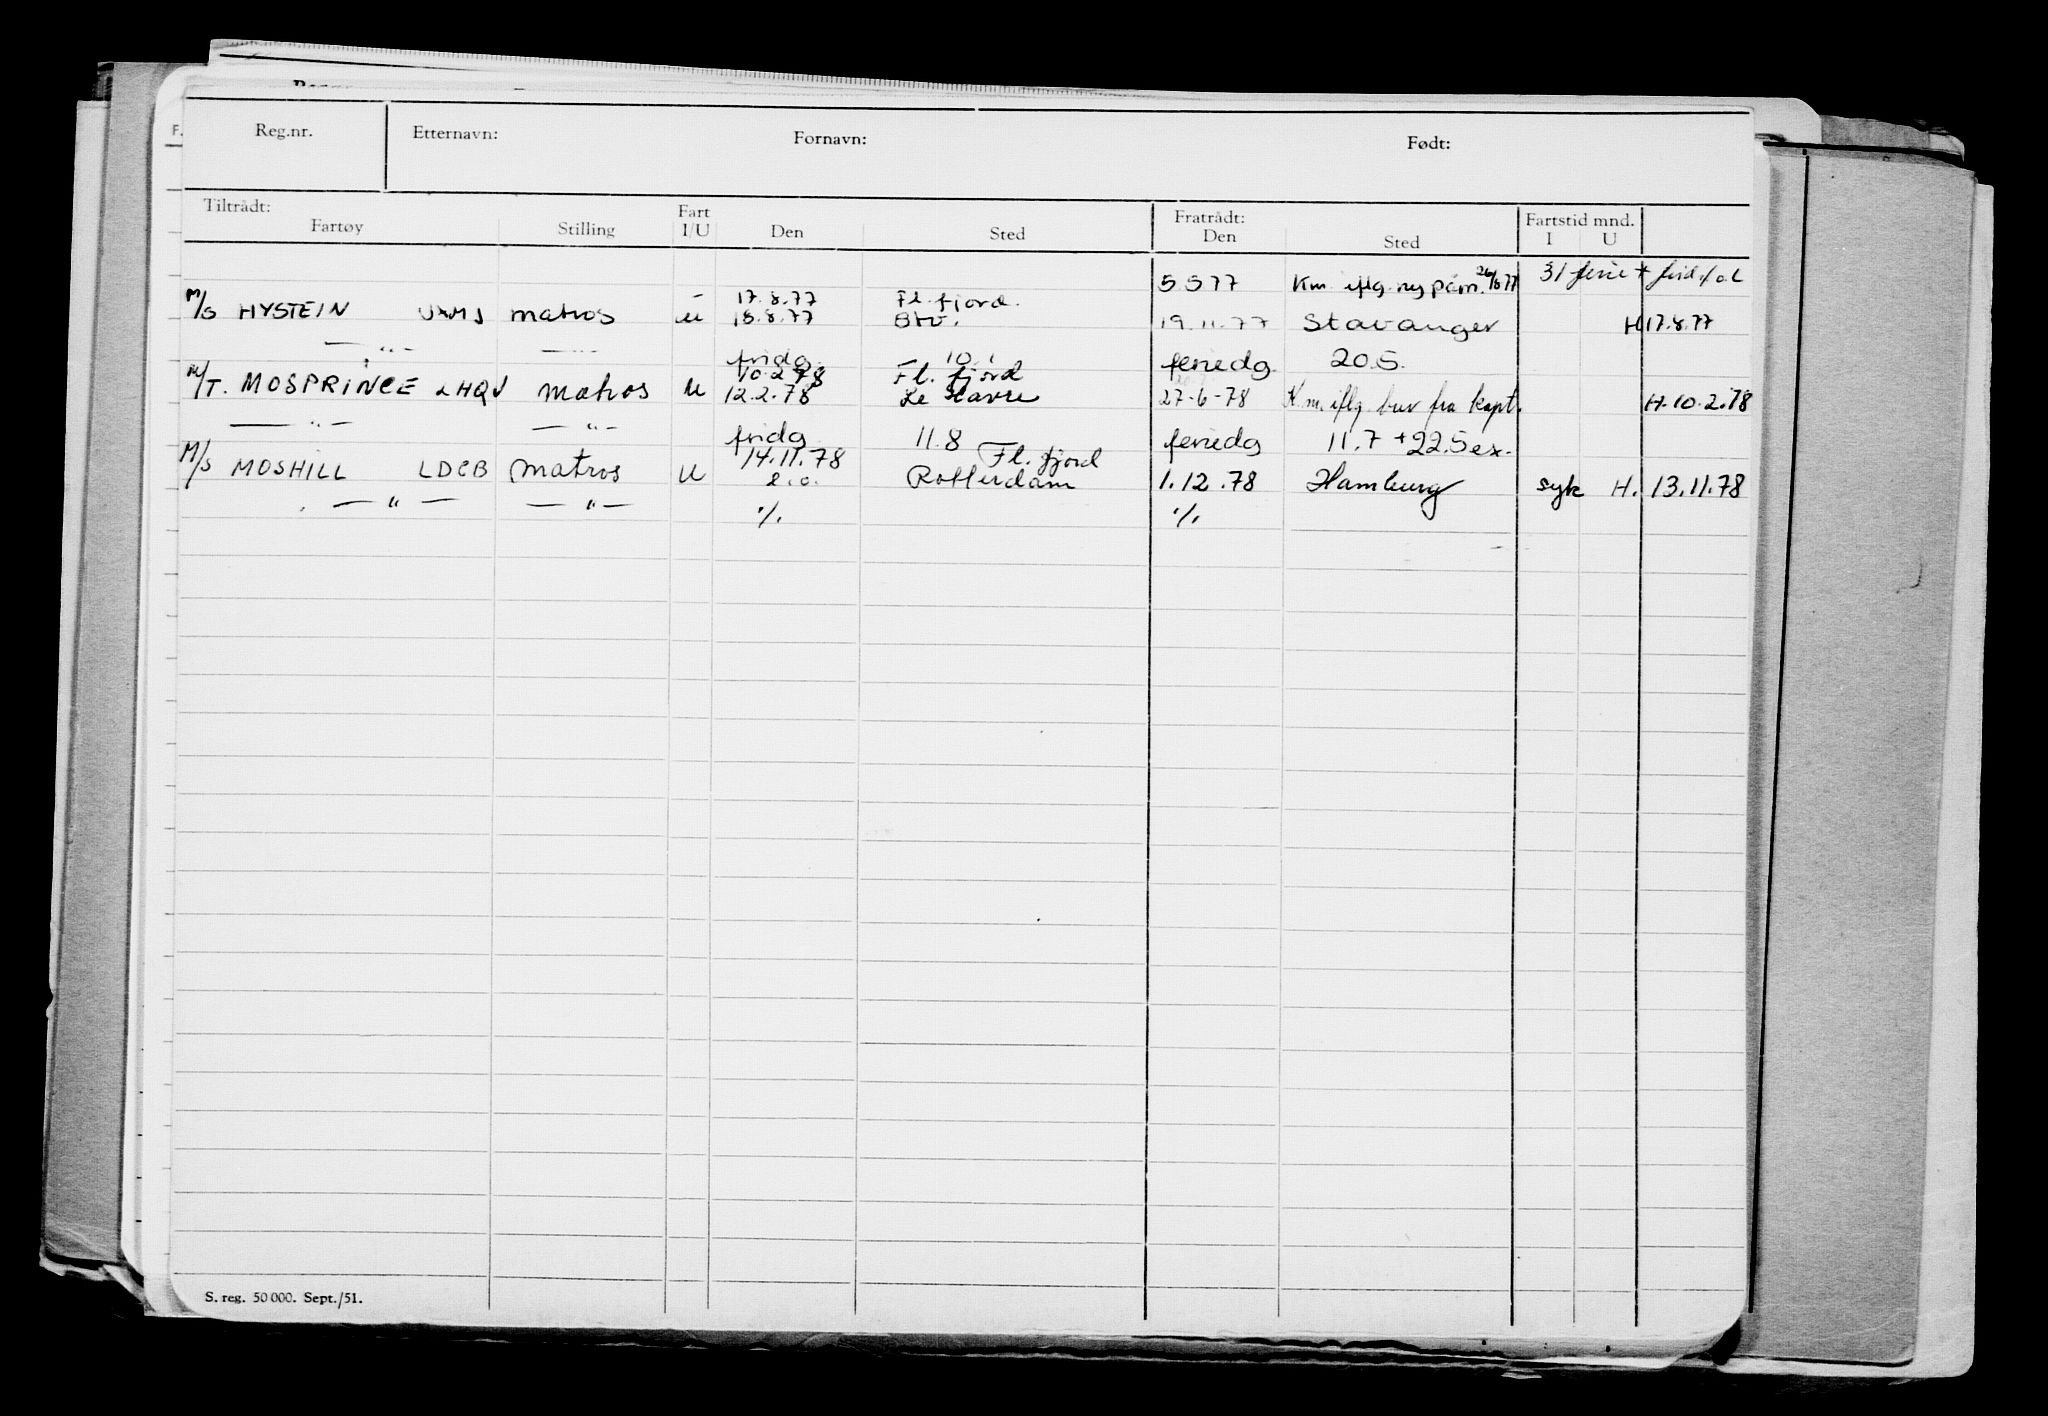 Reg.nr. Etternavn: Fornavn: Født:
Tiltrådt: Fratrådt: Fartstid mnd.
Fartøy Stilling Fart I/U Den Sted Den Sted I U
5 5 77 Km iflg. ny påm. 26/8 77 31 ferie + frid
17.8.77 Fl.fjord.
M/S HYSTEIN matros u 18.8.77 19.11.77 Stavanger H 17.8.77
— " — — " — fridg 10.1 feriedg. 20.5.
10.2.78 Fl. fjord
M/T. MOSPRINCE LHQV matros u 12.2.78 Le Havre 27-6-78 K.m. iflg. brev fra kapt. H. 10.2.78
— " — — " — fridg 11.8 feriedg 11.7 + 22.5 ex.
14.11.78 Fl. fjord
M/S MOSHILL LDCB matros u e.o. Rotterdam 1.12.78 Hamburg syk H. 13.11.78
— " — — " — ./. ./.
S. reg. 50 000. Sept./51.